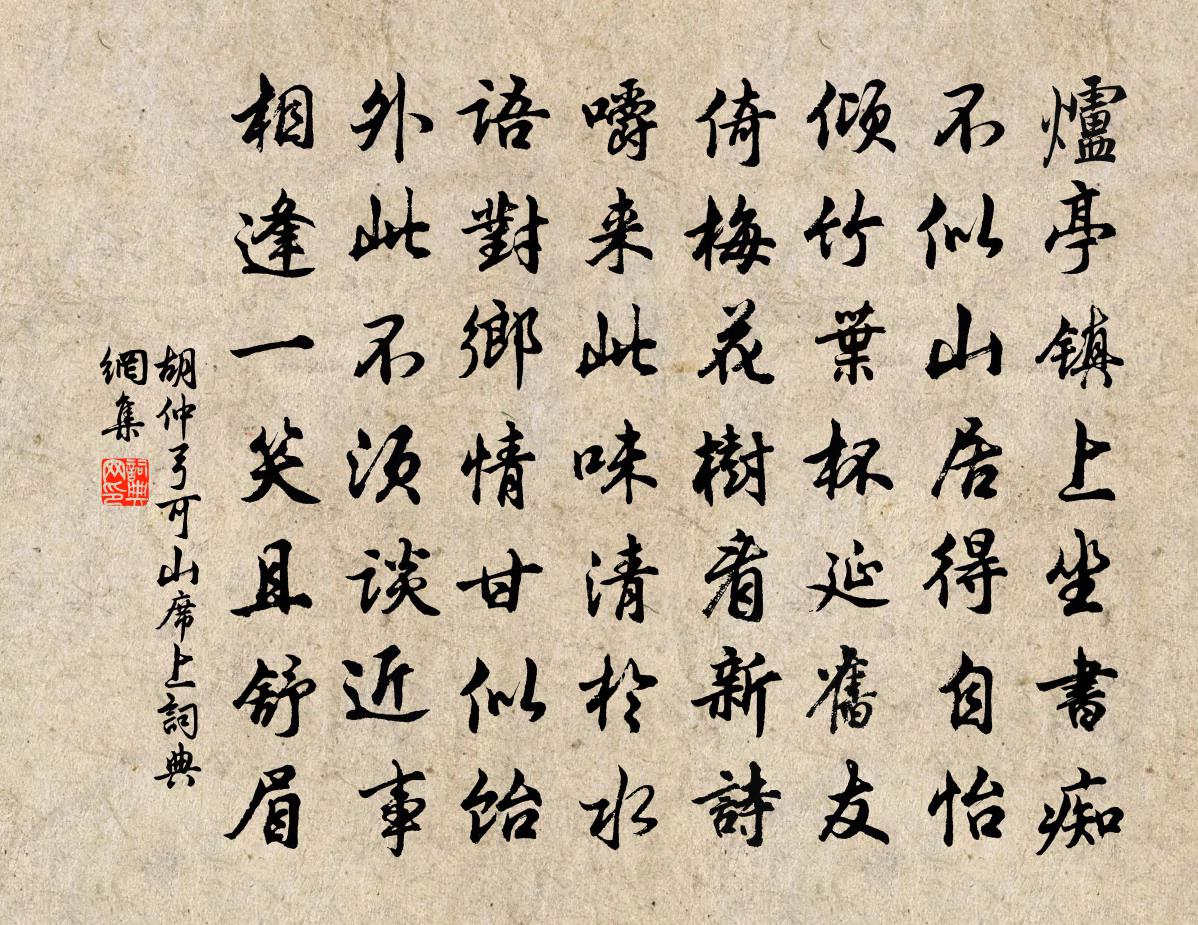 爐亭镇上坐書痴
不似山居得自怡
傾竹葉杯延舊友
倚梅花樹看新詩
嚼来此味清於水
語對鄉情甘似飴
外此不須談近事
相逢一笑且舒眉
胡仲弓可山席上詞典
網集
詞典
网印